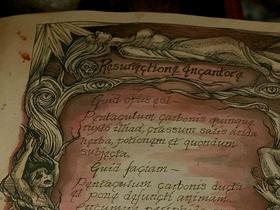 Resurrectione Incantare
Quid opus est -
Pentaculum carbonis quinque
crassum salis acida
herba, potionem et quondam
subjecta.
Quid faciam -
Pentaculum carbonis ducta
et pone defuncti animam.